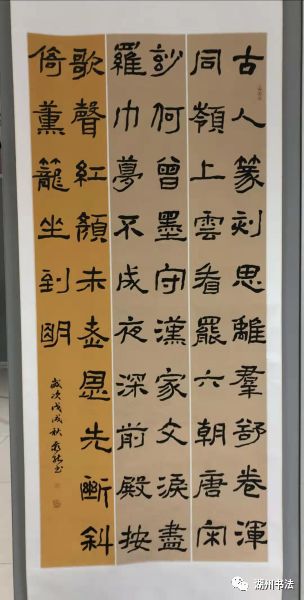 古人篆刻思離羣舒卷渾
同嶺上雲看罷六朝唐宋
玅何曾墨守漢家文淚盡
羅巾夢不成夜深前殿按
歌聲紅顏未老恩先斷斜
倚薰籠坐到明
歲次戊戌秋
湖州书法